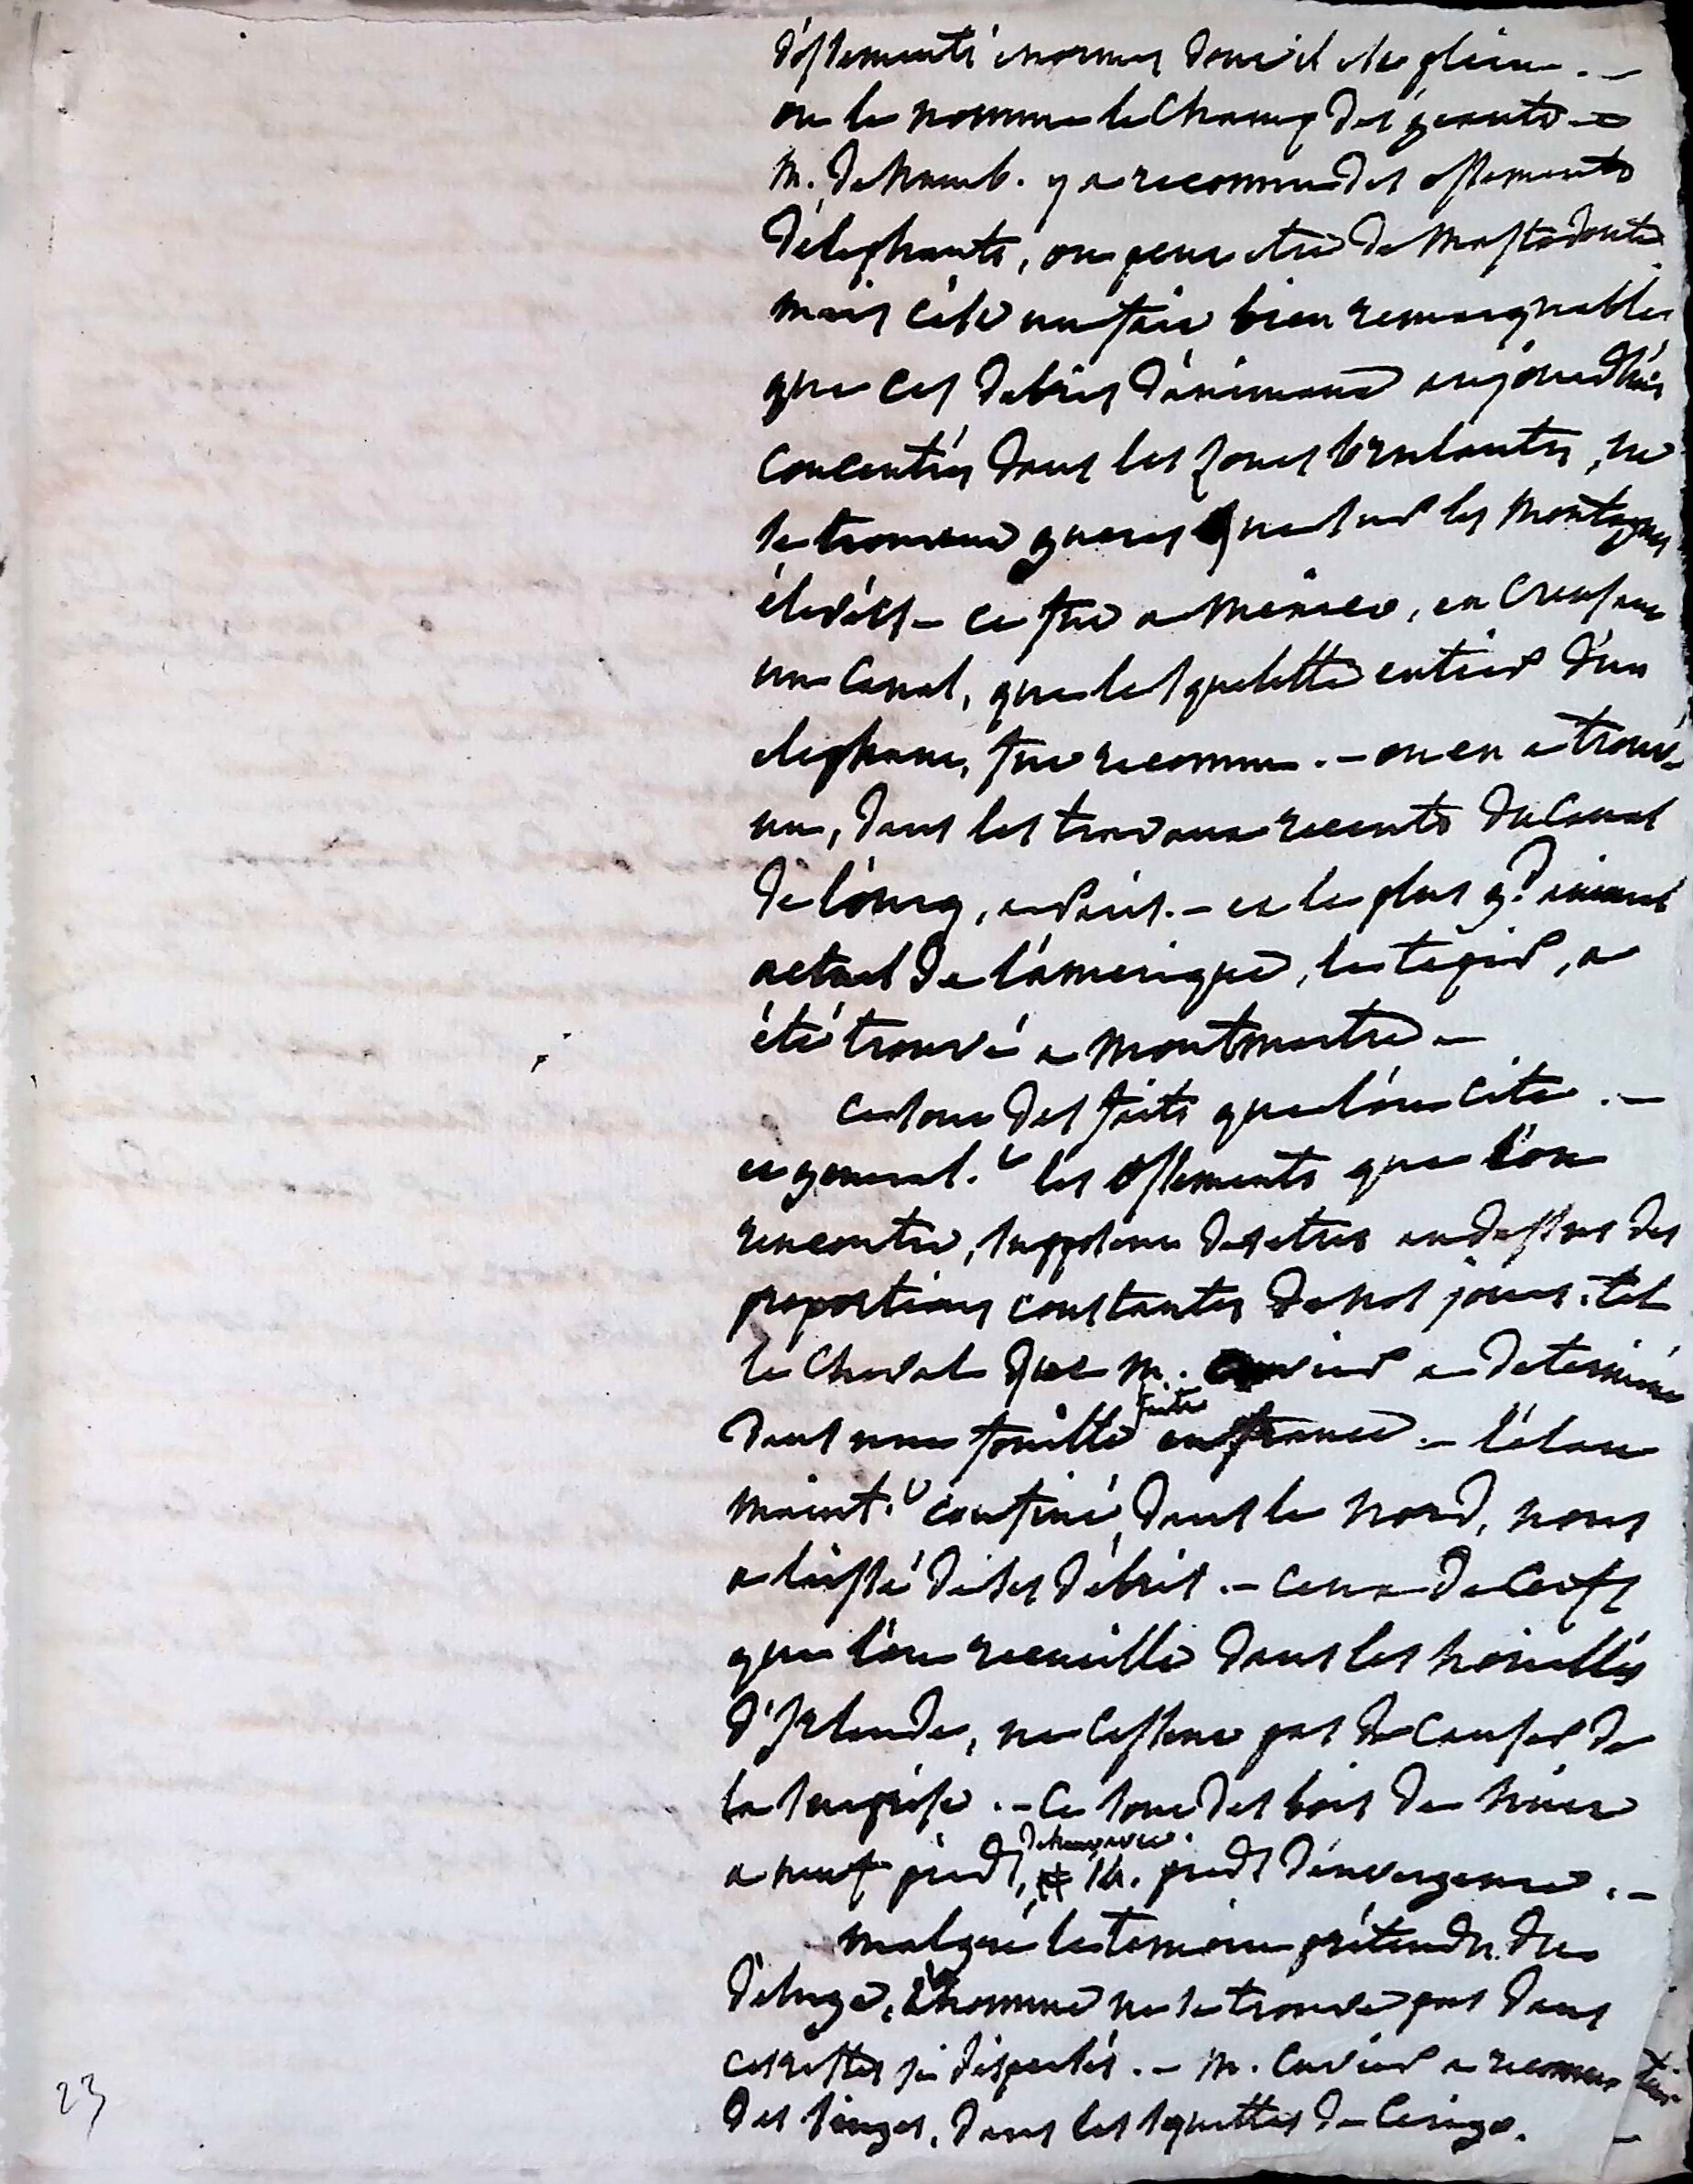 d'ossements énormes dont il est plein. —
on le nomme le Champ des géants —
M. de humb. y a reconnu des ossements
d'élephants, ou peut etre de Mastodonte.
mais c'est un fait bien remarquable
que ces debris d'animaux aujourd'hui
concentrés dans les zones brulantes, ne
se trouvent gueres que sur les montagnes
élevées — ce fut a Mexico, en creusant
un canal, que le squelette entier d'un
elephant, fut reconnu. — on en a trouvé
un, dans les travaux recents du canal
de l'ourq, a Paris. — et le plus gd. animal
actuel de l'amerique, le tapir, a
été trouvé a montmartre —
ce sont des faits que l'on cite. —
en general.t les ossements que l'on
rencontre, supposent des etres au dessus des
proportions constantes de nos jours. tel
le cheval que M. Cuvier a determiné
dans une fouille faite en france. — l'élan
maint.t confiné dans le nord, nous
a laissé de ses débris. — ceux de cerfs
que l'on recueille dans les houilles
d'Irlande, ne cessent pas de causer de
la surprise. — ce sont des bois de
a neuf pieds de hauteur. 14. pieds d'envergure. —
malgré le temoin prétendu du
déluge, l'homme ne se trouve pas dans
ces restes si dispersés. — M. Cuvier a reconnu
des singes, dans les squelettes de Cerigo.
23